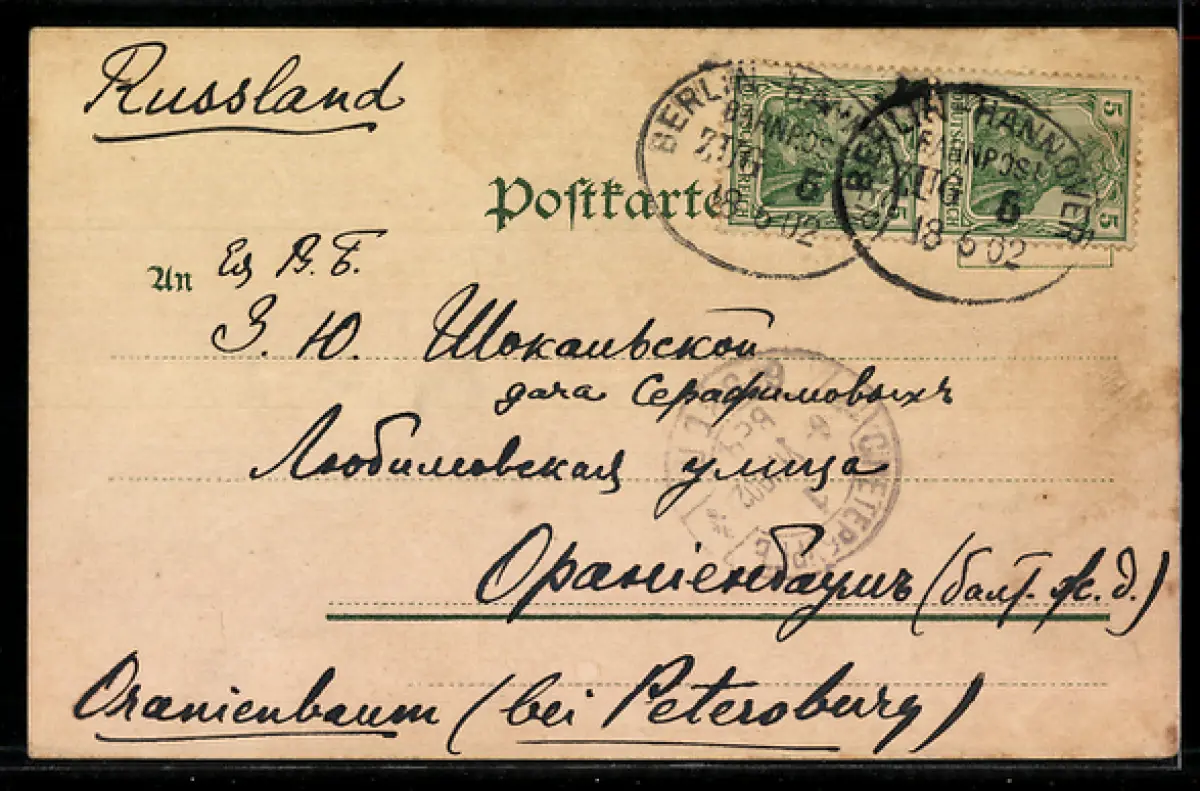 Russland
Postkarte
BERLIN HANNOVER
BAHNPOST
ZUG 5
18 5 02
BERLIN HANNOVER
BAHNPOST
ZUG 5
18 5 02
5
DEUTSCHES REICH
5
5
An Ея В. Б.
З. Ю. Шокальской
дача Серафимовыхъ
Любимовская улица
Ораніенбаумъ (балт. ж. д.)
Oranienbaum (bei Petersburg)
С.ПЕТЕРБУРГЪ
1